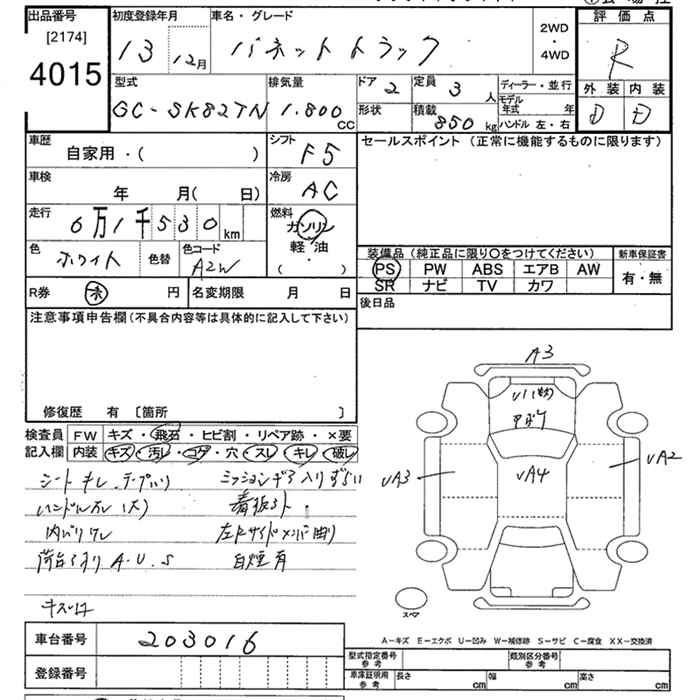 出品番号
[2174]
4015
初度登録年月
13 12月
車名・グレード
バネットトラック
2WD
・
4WD
評価点
R
外装 内装
D D
型式
GC-SK82TN
排気量
1.800
CC
ドア 2
形状
定員 3 人
積載 850 kg
ディーラー・並行
モデル
年式 年
ハンドル 左・右
車歴
自家用・( )
シフト
F5
セールスポイント (正常に機能するものに限ります)
車検
年 月( 日)
冷房
AC
走行
6万1千530km
燃料
ガソリン
軽・油
・
( )
色
ホワイト
色替
色コード
A2W
装備品 (純正品に限り○をつけてください)
PS PW ABS エアB AW
SR ナビ TV カワ
新車保証書
有・無
R券 円
名変期限 月 日
後日品
注意事項申告欄(不具合内容等は具体的に記入して下さい)
修復歴 有 [箇所 ]
検査員
記入欄
FW キズ・飛石・ヒビ割・リペア跡・×要
内装 キズ・汚レ・コゲ・穴・スレ・キレ・破レ
シートキレ テープハリ ミッションギヤ入りずらい
ハンドルスレ(大)
内バリワレ 左Fサイドメンバ曲り
A.U.S 白煙有
A3
アオゾ
UA3
UA4
UA2
スペア
A-キズ E-エクボ U-凹み W-補修跡 S-サビ C-腐食 XX-交換済
車台番号 203016
登録番号
型式指定番号
参考
類別区分番号
参考
車庫証明用
参考
長さ cm 幅 cm 高さ cm